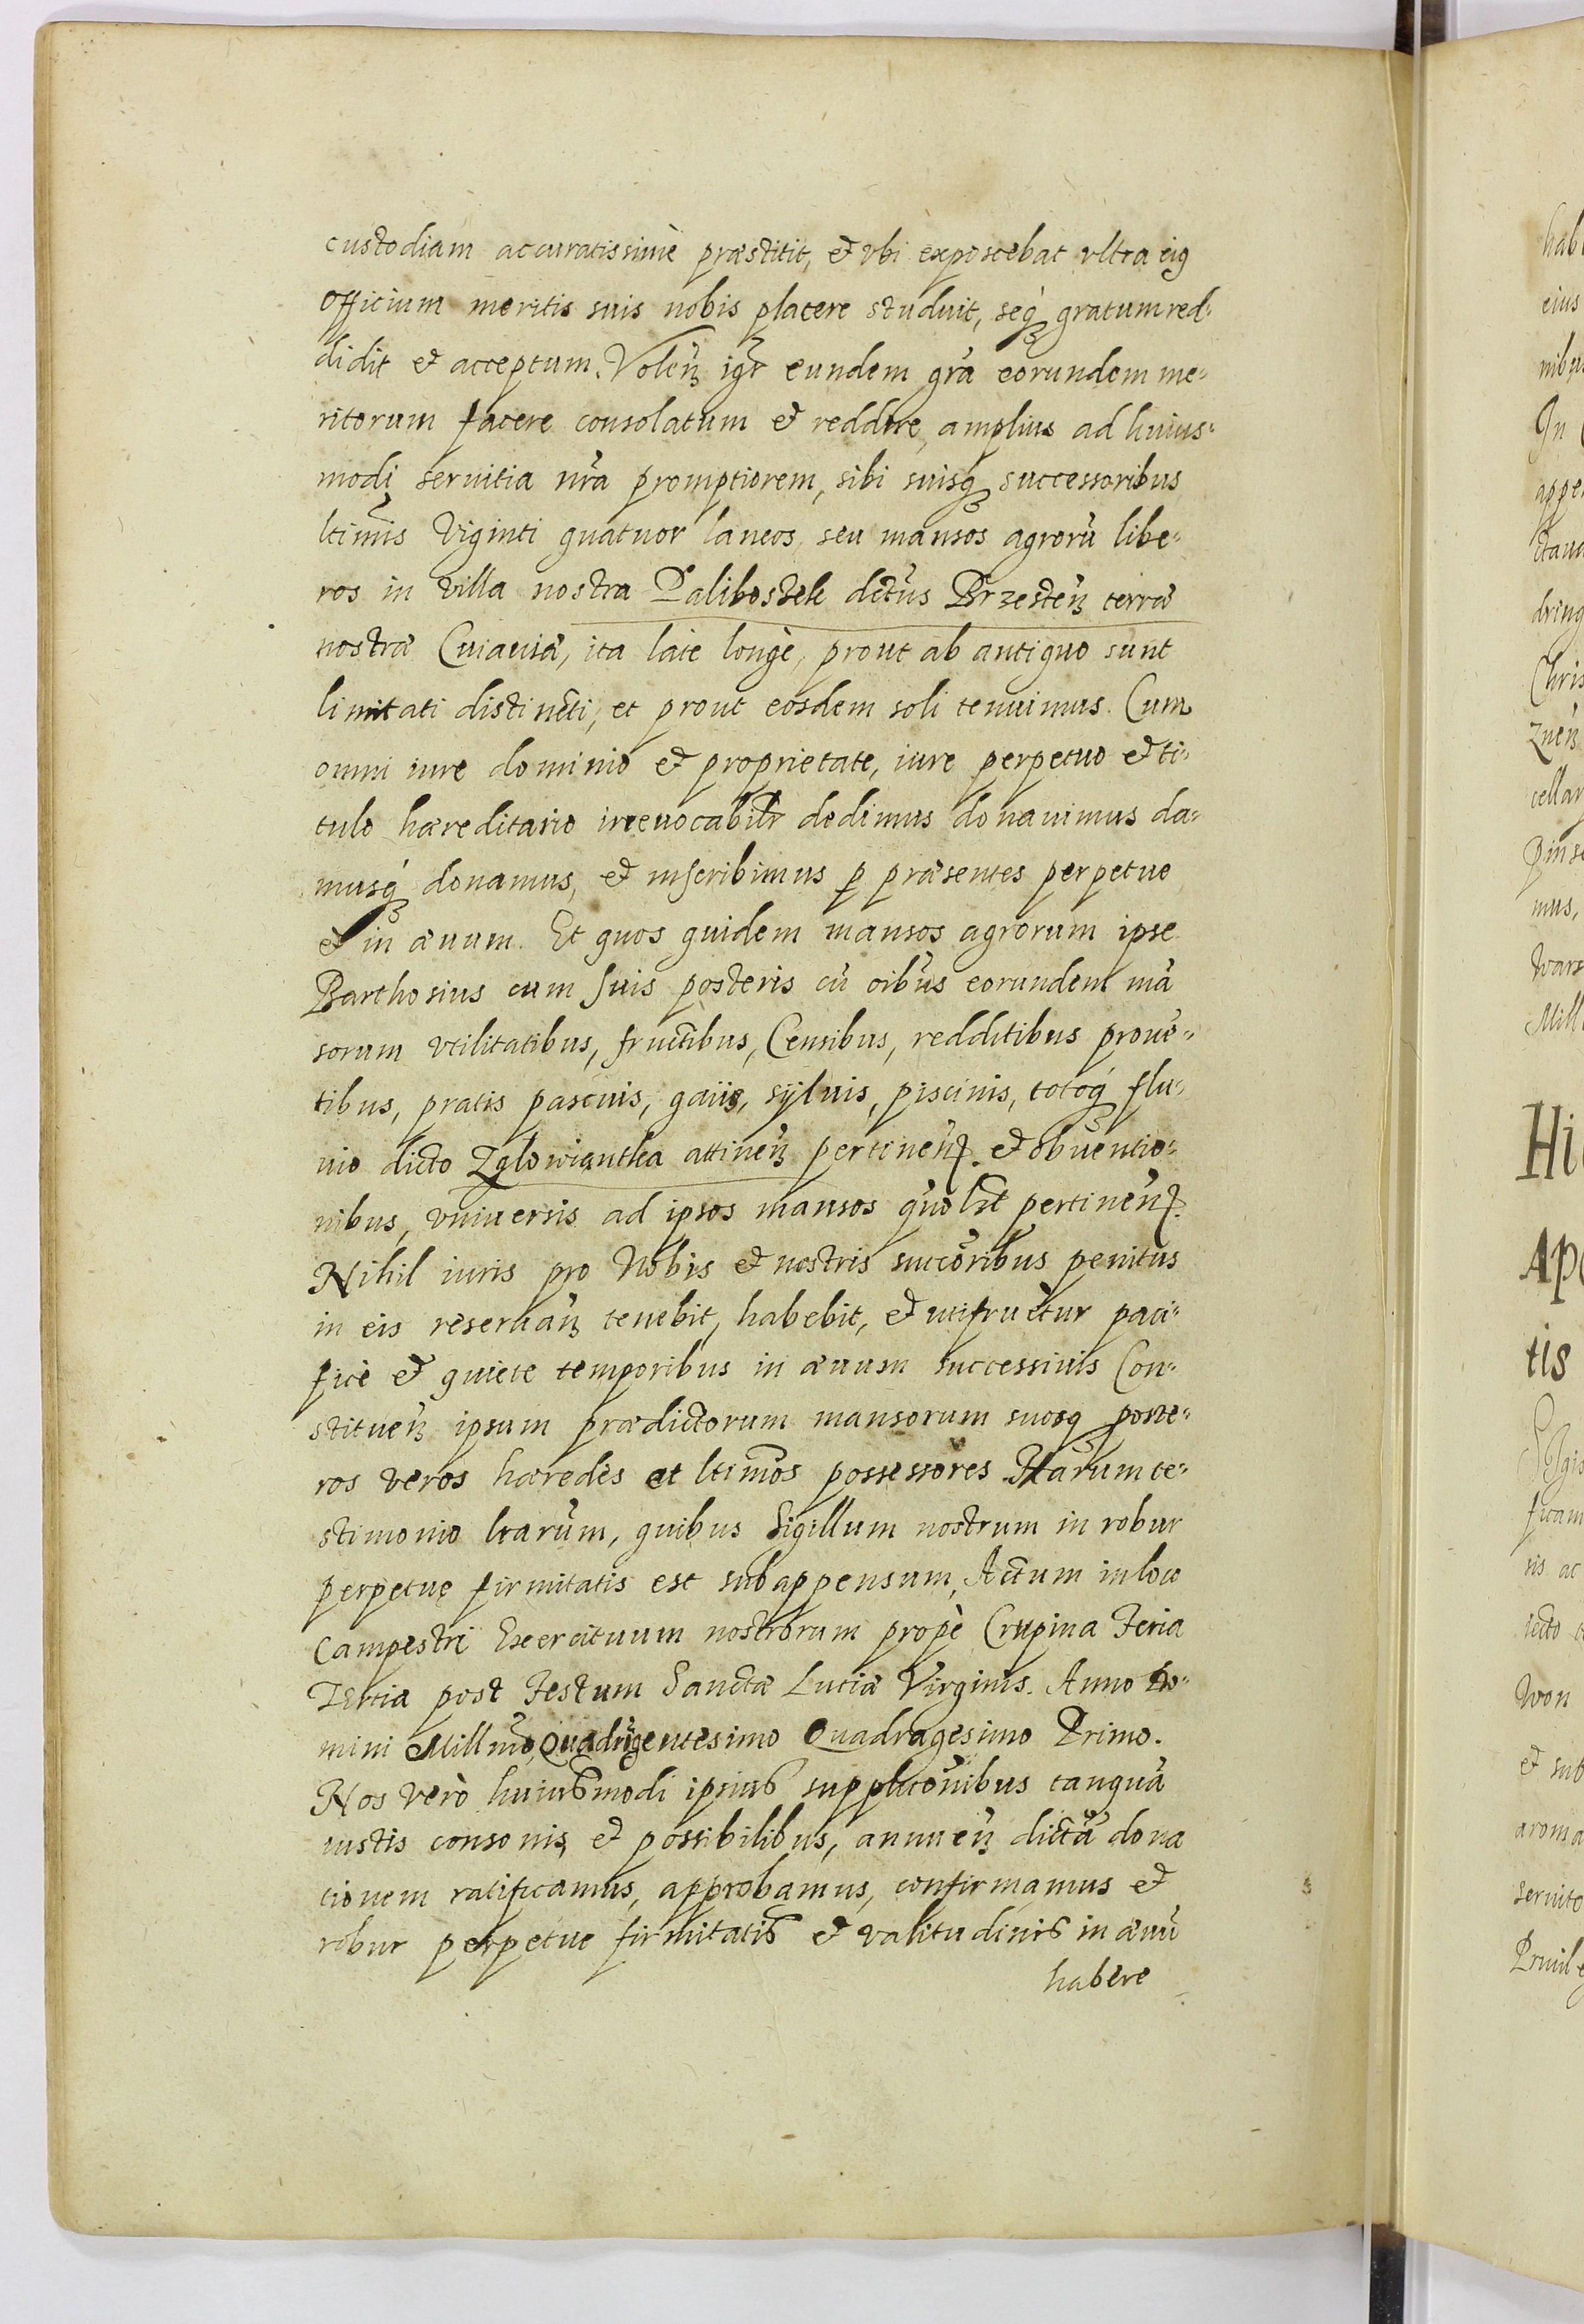 custodiam accuratissimè præstitit, et vbi exposcebat vltra eiꝰ
officium meritis suis nobis placere studuit, seqꝫ gratum red-
didit et acceptum. Voleñ igr̃ eundem gr̃a eorundem me-
ritorum facere consolatum et reddere, amplius ad huius-
modi seruitia nr̃a promptiorem, sibi suisqꝫ successoribus
ltimĩs Viginti quatuor laneos, seu mansos agrorũ libe-
ros in villa nostra Paliboszek dictus Brzesteñ terræ
nostræ Cuiauiæ, ita latè longè, prout ab antiquo sunt
limitati distincti, et prout eosdem soli tenuimus. Cum
omni iure dominio et proprietate, iure perpetuo et ti-
tulo hæreditario irreuocabilr̃ dedimus donauimus da-
musqꝫ donamus, et inscribimus ꝑ præsentes perpetue
et in æuum. Et quos quidem mansos agrorum ipse
Barthosius cum suis posteris cũ oĩbus eorundem mã
sorum vtilitatibus, fructibus, Censibus, redditibus prouẽ-
tibus, pratis pascuis, gaiis, sÿluis, piscinis, totoqꝫ flu-
uio dicto Zglowiantka attineñ pertineñ. et obuentio-
nibus, vniuersis ad ipsos mansos quolȝt pertineñ.
Nihil iuris pro Nobis et nostris succõribus penitus
in eis reseruañ tenebit, habebit, et utifruetur paci-
ficè et quietè temporibus in æuum successiuis Con-
stitueñ ipsum prædictorum mansorum suosqꝫ poste-
ros veros hæredes et ltimõs possessores Harum te-
stimonio lrarũm, quibus Sigillum nostrum in robur
perpetuę firmitatis est subappensum, Actum in loco
Campestri Exercituum nostrorum propè Crupina Feria
Tertia post Festum Sanctæ Luciæ Virginis. Anno Do-
mini Millmõ, Quadringentesimo Quadragesimo Primo.
Nos verò huiusmodi ipsius supplicõnibus tanquã
iustis consonis, et possibilibus, annueñ dictã dona
tionem ratificamus, approbamus, confirmamus et
robur perpetue firmitatis et valitudinis in æuũ
habere